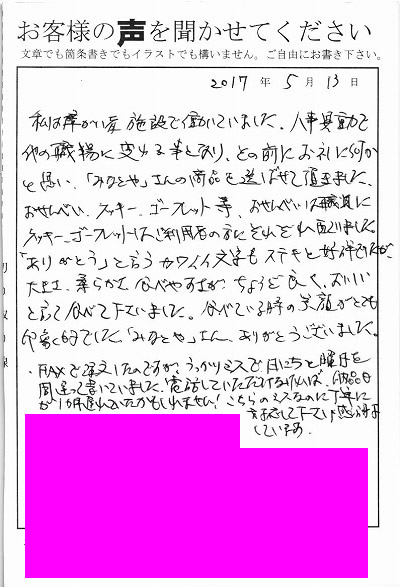 お客様の声を聞かせてください
文章でも箇条書きでもイラストでも構いません。ご自由にお書き下さい。
2017年5月13日
私は障がい者施設で働いていました。人事異動で
他の職場に変わる事となり、その前にお礼に何か
と思い、「みなとや」さんの商品を選ばせて頂きました。
おせんべい、クッキー、ゴーフレット等、おせんべいは職員に
クッキー、ゴーフレットはご利用者の方にそれぞれ配りました。
「ありがとう」と言うカワイイ文字もステキと好評でしたが、
大きさ、柔らかさ、食べやすさが、ちょうど良く、おいしい
と言って食べて下さいました。食べている時の笑顔がとても
印象的でした。「みなとや」さん、ありがとうございました。
・FAXで注文したのですが、うっかりミスで、日にちと曜日を
間違って書いていました。電話していただけなければ、納品日
が1か月遅れていたかもしれません!こちらのミスなのに丁寧に
対応して下さり感謝
しています。